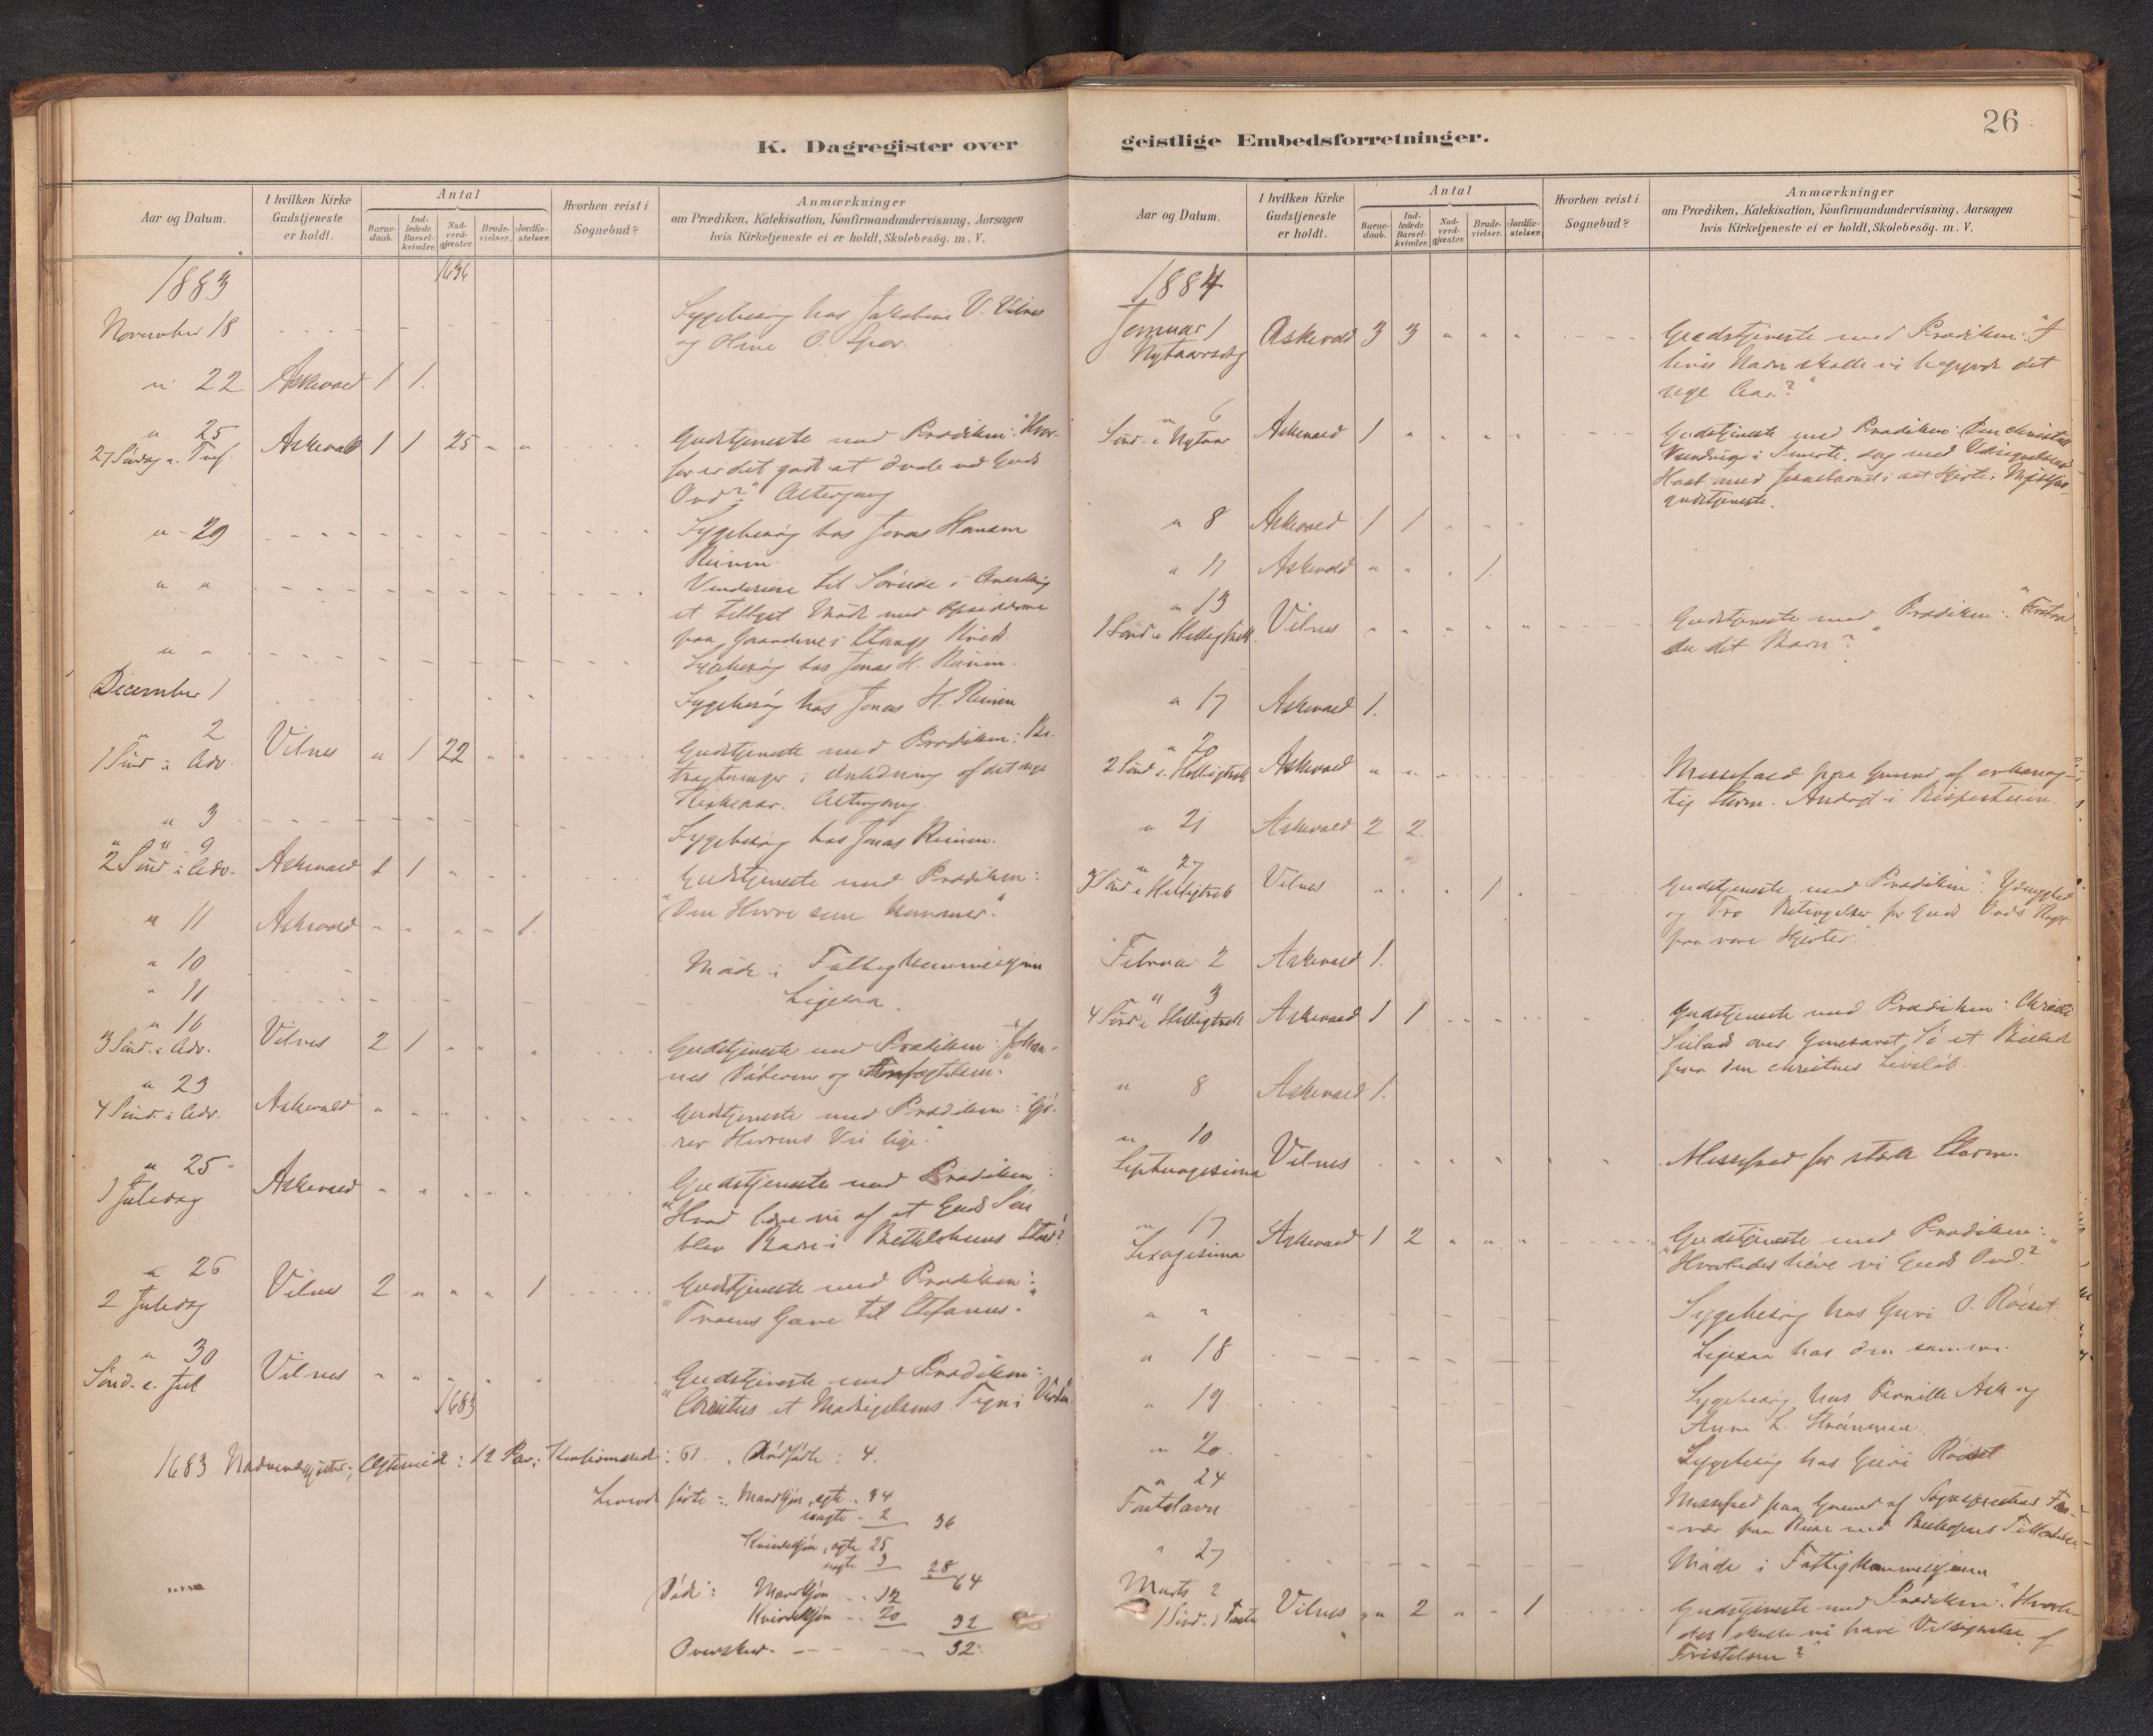 K. Dagregister over
Aar og Datum.
I hvilken Kirke Gudstjeneste er holdt.
Antal
Barnedaab.
Indledede Barselkvinder.
Nadverdgjæster.
Brudevielser.
Jordfæstelser.
Hvorhen reist i Sognebud?
Anmærkninger
om Prædiken, Katekisation, Konfirmandundervisning, Aarsagen
hvis Kirketjeneste ei er holdt, Skolebesög. m. V.
1883 1636
November 18 Sygebesög hos Jakobine V. Vilnes
og Oline O.
" 22 Askevold 1 1.
" 25
27 Söndag e. Tref. Askevold 1 1 25 " " Gudstjeneste med Prædiken: "Hvor-
for er det godt at dvæle ved Guds
Ord?" Altergang
" 29 Sygebesög hos Jonas Hansen
" " til i
et Möde med
paa
" " Sygebesög hos Jonas H.
December 1 Sygebesög hos Jonas H.
2
1 Sönd i Adv. Vilnes " 1 22 " " Gudstjeneste med Prædiken: Be-
tragtninger i Anledning af det nye
Kirkeaar. Altergang.
" 3 Sygebesög hos Jonas
" " 9
2 Sönd i Adv. Askevold 1 1 " Gudstjeneste med Prædiken:
"Den Herre som kommer."
" 11 Askevold " " " " 1.
" 10 Möde i Fattigkommissionen
" 11 Ligesaa.
" 16
3 Sönd. i Adv. Vilnes 2 1 " " " Gudstjeneste med Prædiken: "Johan-
nes Döberen og
" 23
4 Sönd. i Adv. Askevold " " " Gudstjeneste med Prædiken: "Gjö-
rer Herrens Vei lige."
" 25
1 Juledag Askevold " " " " " Gudstjeneste med Prædiken:
"Hvad lære vi af at Guds Sön
blev Barn i Bethlehems Stald?"
" 26
2 Juledag Vilnes 2 " " " 1 Gudstjeneste med Prædiken:
"Troens Gave til Stefanus."
" 30
Sönd. e. Jul Vilnes " " " " " Gudstjeneste med Prædiken:
1683 "Christus et Modsigelsens Tegn i Verden
1683 Nadverdgjæster; Ægteviede: 12 Par; Konfirmerede: 61. Dödfödte: 4.
Levende födte: Mandkjön, ægte 34
uægte 2 36
Kvindekjön, ægte 25
uægte 3 28
64
Döde: Mandkjön 12
Kvindekjön 20 32
Overskud 32.
geistlige Embedsforretninger.
26
Aar og Datum.
I hvilken Kirke Gudstjeneste er holdt.
Antal
Barnedaab.
Indledede Barselkvinder.
Nadverdgjæster.
Brudevielser.
Jordfæstelser.
Hvorhen reist i Sognebud?
Anmærkninger
om Prædiken, Katekisation, Konfirmandundervisning, Aarsagen
hvis Kirketjeneste ei er holdt, Skolebesög. m. V.
1884
Januar 1
Nytaarsdg Askevold 3 3 " " " Gudstjeneste med Prædiken: "I
hvis Navn skulle vi begynde det
nye Aar?"
" 6
Sönd. e. Nytaar Askevold 1 " " " " Gudstjeneste med Prædiken: Den
Vandring i
Haab med i sit Hjerte. Missions-
gudstjeneste.
" 8 Askevold 1 1 " " "
" 11 Askevold " " " 1.
" 13
1 Sönd e Helligtrek. Vilnes " " " " " Gudstjeneste med Prædiken: "
du dit Barn?"
" 17 Askevold 1.
" 20
2 Sönd e. Helligtrek Askevold " " " Messefald paa Grund af
tig Storm. Andagt i
" 21 Askevold 2 2.
" 27
3 Sönd e Helligtrek Vilnes " " " 1 " Gudstjeneste med Prædiken: "Ydmyghed
og Tro Betingelser for Guds Ords
paa vore Hjerter."
Februar 2 Askevold 1.
" 3
4 Sönd e Helligtrek Askevold 1 1 " " " Gudstjeneste med Prædiken: Christi
Seilads over Genesaret Sö et Billede
paa den christnes Livslöb.
" 8 Askevold 1.
" 10
Septuagesima Vilnes " " " " " Messefald for stærk Storm.
" 17
Sexagesima Askevold 1 2 " " " Gudstjeneste med Prædiken:
"Hvorledes höre vi Guds Ord?"
" " Sygebesög hos Guri O. Röiset
" 18 Ligesaa hos den samme.
" 19 Sygebesög hos Pernille Ask og
Anne L. Strömmen.
" 20. Sygebesög hos Guri Röiset
" 24
Fastelavn Messefald paa Grund af Sognepræstens Fra-
vær paa Reise med Biskopens Tilladelse.
" 27 Möde i Fattigkommissionen
Marts 2
1 Sönd. i Faste Vilnes " " 2 " " 1 Gudstjeneste med Prædiken: "Hvorle-
des skulle vi have Velsignelse af
Fristelsen?"